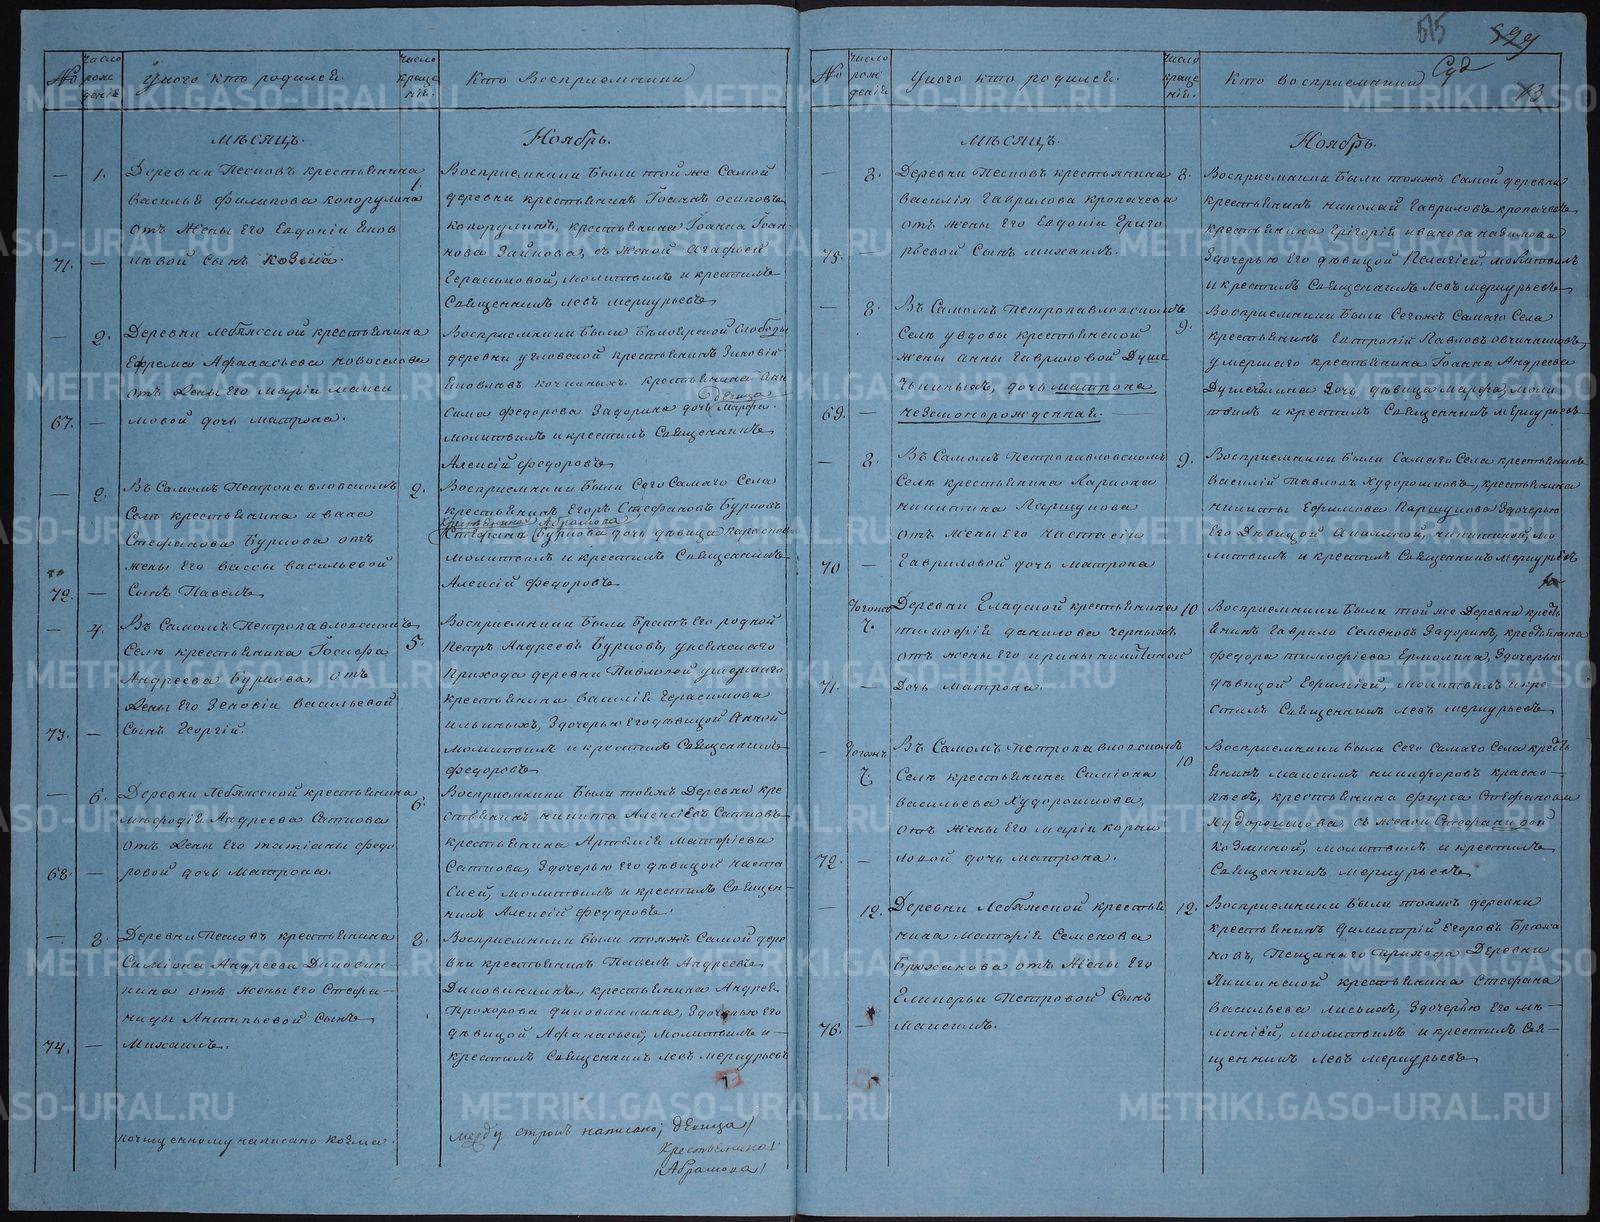 №
Число рождения
У кого кто родился.
Число крещения.
Кто Восприемники
Мѣсяцъ.
Ноябрь.
—
1.
Деревни Песковъ крестьянина
Василья Филипова Копорулина
отъ жены его Евдокіи
сынъ Козьма.
71. —
1.
Восприемники были той же самой
деревни крестьянинъ Іоаннъ Осиповъ
Копорулинъ, крестьянина Іоанна Іоан-
нова Зайкова, съ женой Агафьей
Герасимовой, молитвилъ и крестилъ
Священникъ Левъ Меркурьевъ
—
2.
Деревни Лебяжской крестьянина
Ефрема Афанасьева Новоселова
отъ жены его Маріи Макси
мовой дочь Матрона.
67. —
Восприемники были Бѣлоярской слободы
деревни Угловской крестьянинъ Зиновій
крестьянина
Федорова Задорина дочь дѣвица Марфа.
молитвилъ и крестилъ Священникъ
Алексій Федоровъ
—
2.
Въ самомъ Петропавловскомъ
селѣ крестьянина Ивана
Стефанова Буркова отъ
жены его Вассы Васильевой
сынъ Павелъ
72. —
2.
Восприемники были сего самаго села
крестьянинъ Егоръ Стефановъ Бурковъ
крестьянина Абрамова
Стефана Буркова дочь дѣвица Парасковья
молитвилъ и крестилъ Священникъ
Алексій Федоровъ
—
4.
Въ самомъ Петропавловскомъ
селѣ крестьянина Іосифа
Андреева Буркова отъ
жены его Зеновіи Васильевой
сынъ Георгій.
73. —
5.
Восприемники были братъ его родной
Петръ Андреевъ Бурковъ,
прихода деревни Павловой умершаго
крестьянина Василіе Герасимова
Ильиныхъ, з дочерью его дѣвицой Анной
молитвилъ и крестилъ Священникъ
Федоровъ
—
6.
Деревни Лебяжской крестьянина
Мефодія Андреева Саткова
отъ жены его Татіаны Федо
ровой дочь Матрона.
68. —
6.
Восприемники были тояжъ деревни кре
стьянинъ Никита Алексѣевъ Сатковъ
крестьянина Артемія Матфіева
Саткова, з дочерью его дѣвицой Наста
сіей, молитвилъ и крестилъ Священ-
никъ Алексій Федоровъ.
—
8.
Деревни Песковъ крестьянина
Симіона Андреева Диковин-
кина отъ жены его Стефа-
ниды Антипьевой сынъ
Михаилъ.
74. —
8.
Восприемники были тояжъ самой дере
вни крестьянинъ Павелъ Андреевъ
Диковинкинъ, крестьянина Андрея
Прохорова Диковинкина, з дочерью его
дѣвицой Афанасьей, молитвилъ и
крестилъ Священникъ Левъ Меркурьевъ
По чищенному написано Козма.
между строкъ написано; дѣвица/
крестьянина/
/Абрамова/
515
529
№
Число рождения
У кого кто родился.
Число крещения.
Кто восприемники
Мѣсяцъ.
Ноябрь.
—
8.
Деревни Песковъ крестьянина
Василія Гаврилова Кропачева
отъ жены его Евдокіи Григо
рьевой сынъ Михаилъ.
75. —
8.
Восприемники были тояжъ самой деревни
крестьянинъ Николай Гавриловъ Кропачевъ
крестьянина Григорія Иванова Назимова
з дочерью его дѣвицой Пелагіей, молитвилъ
и крестилъ Священникъ Левъ Меркурьевъ
—
8.
Въ самомъ Петропавловскомъ
селѣ у вдовы крестьянской
жены Анны Гавриловой Душе
чкиныхъ, дочь Матрона
незаконорожденная.
69. —
9.
Восприемники были сегожъ самаго села
крестьянинъ Евтропій Павловъ Овчинниковъ,
умершаго крестьянина Іоанна Андреева
Душечкина дочь дѣвица Марфа, моли
твилъ и крестилъ Священникъ Меркурьевъ
—
8.
Въ самомъ Петропавловскомъ
селѣ крестьянина Ларіона
Никитина Паршукова
отъ жены его Настасіи
Гавриловой дочь Матрона
70 —
9.
Восприемники были самаго села крестьянинъ
Василій Павловъ Худорошковъ, крестьянина
Никиты Ефимова Паршукова з дочерью
его дѣвицой Акилиной Никитиной, мо
литвилъ и крестилъ Священникъ Меркурьевъ
Тогожъ
7.
Деревни Гладской крестьянина
Тимофія Данилова Черныхъ
отъ жены его Ирины Никитиной
дочь Матрона.
71. —
10
Восприемники были той же деревни кресть
янинъ Гаврило Семеновъ Задоринъ, крестьянина
Федора Тимофіева Ермолина, з дочерью
дѣвицой Ефиміей, молитвилъ и кре
стилъ Священникъ Левъ Меркурьевъ
—
Тогожъ
7.
Въ самомъ Петропавловскомъ
селѣ крестьянина Симіона
Васильева Худорошкова,
отъ жены его Маріи Корни
ловой дочь Матрона.
72. —
10
Восприемники были сего самаго села кресть
янинъ Максимъ Никифоровъ Красно-
пѣевъ, крестьянина Фирса Стефанова
Худорошкова съ женой Стефанидой
Козминой, молитвилъ и крестилъ
Священникъ Меркурьевъ
—
12.
Деревни Лебяжской крестья
нина Матфія Семенова
Брюханова отъ жены его
Гликерьи Петровой сынъ
Максимъ.
76. —
12.
Восприемники были тояжъ деревни
крестьянинъ Димитрій Егоровъ Брюха
новъ, Пещанаго прихода деревни
крестьянина Стефана
Васильева Лисьихъ, з дочерью его Ме-
ланіей, молитвилъ и крестилъ Свя-
щенникъ Левъ Меркурьевъ